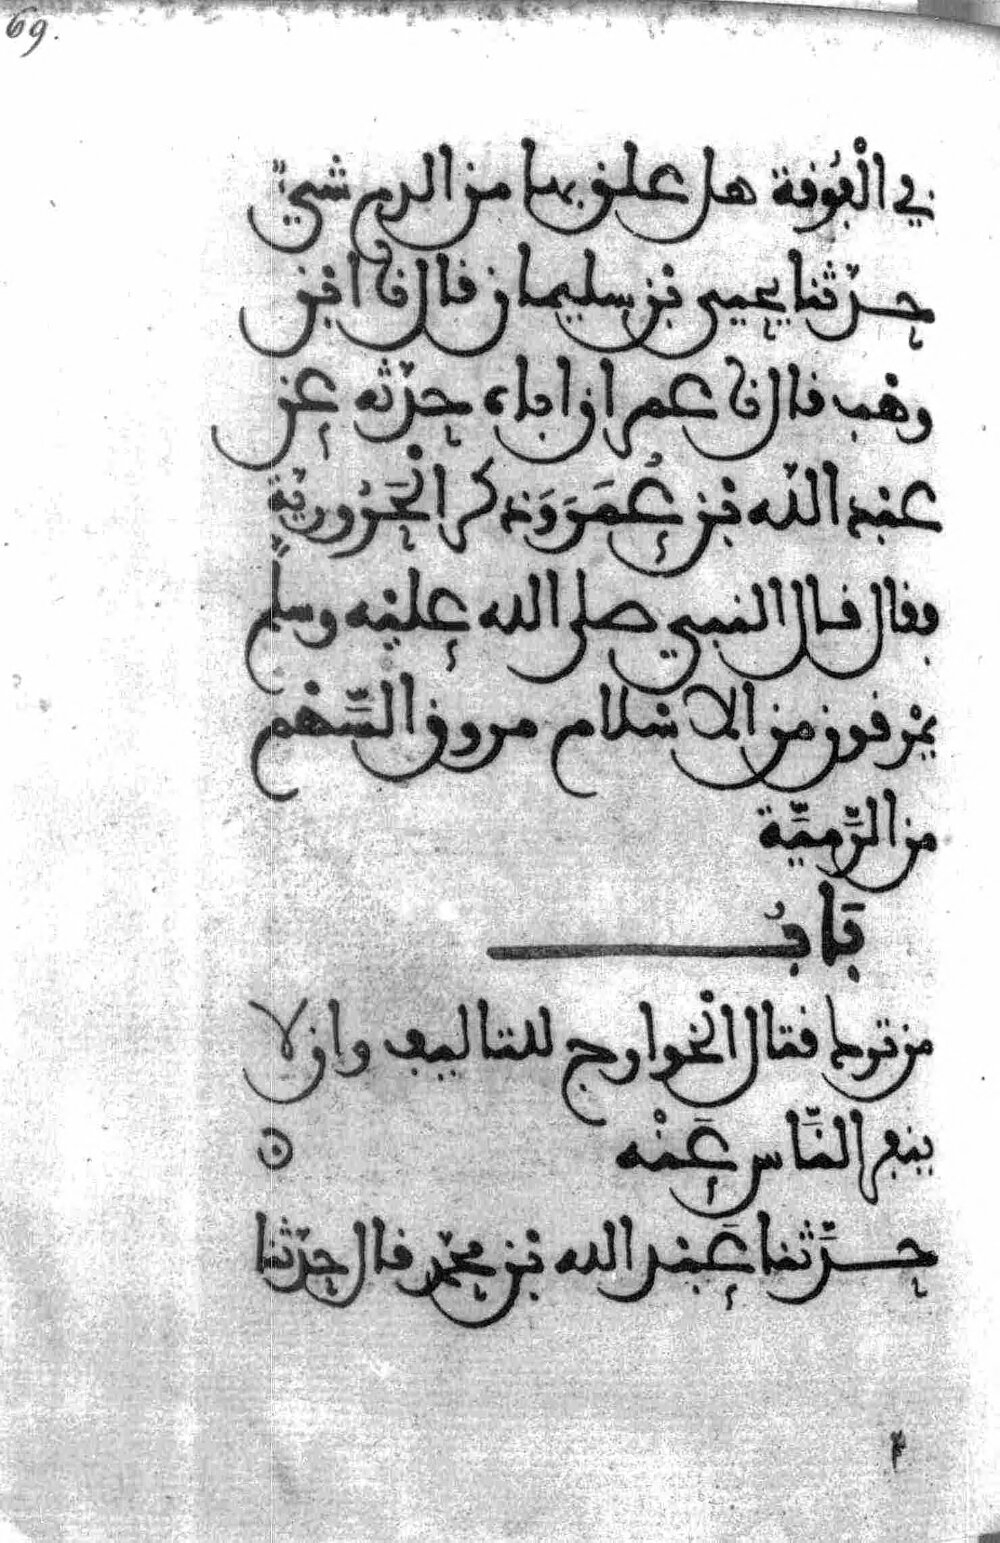 69.
في الْفُوقة هل علق بها من الدم شيءٌ
حدّثنا يحيى بن سليمان قال نا ابن
وهب قال نا عمر ان اباه حدّثه عن
عبد اللّه بن عُمَرَ وَذكر الْحَرُوريّة
فقال قال النبي صلى الله عليه وسلّم
يمْرقون من الاسْلام مروق السَّهْم
من الرَّميَّة
بَابُ
من ترك قتال الْخوارج للتاليف وان لا
ينفر النَّاس عَنْه ه
حدَّثنا عَبْد الله بن محمّد قال حدّثنا